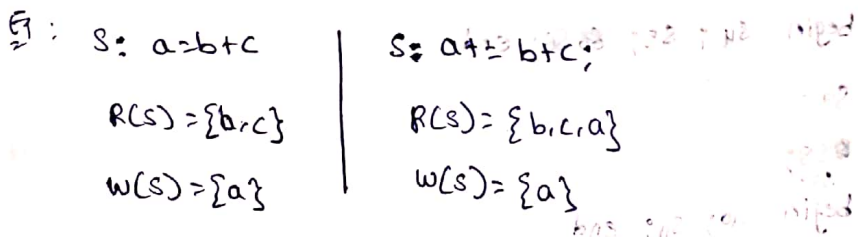 Eg:
S: a=b+c
R(S)={b,c}
W(S)={a}
S: a+= b+c;
R(S)={b,c,a}
W(S)={a}